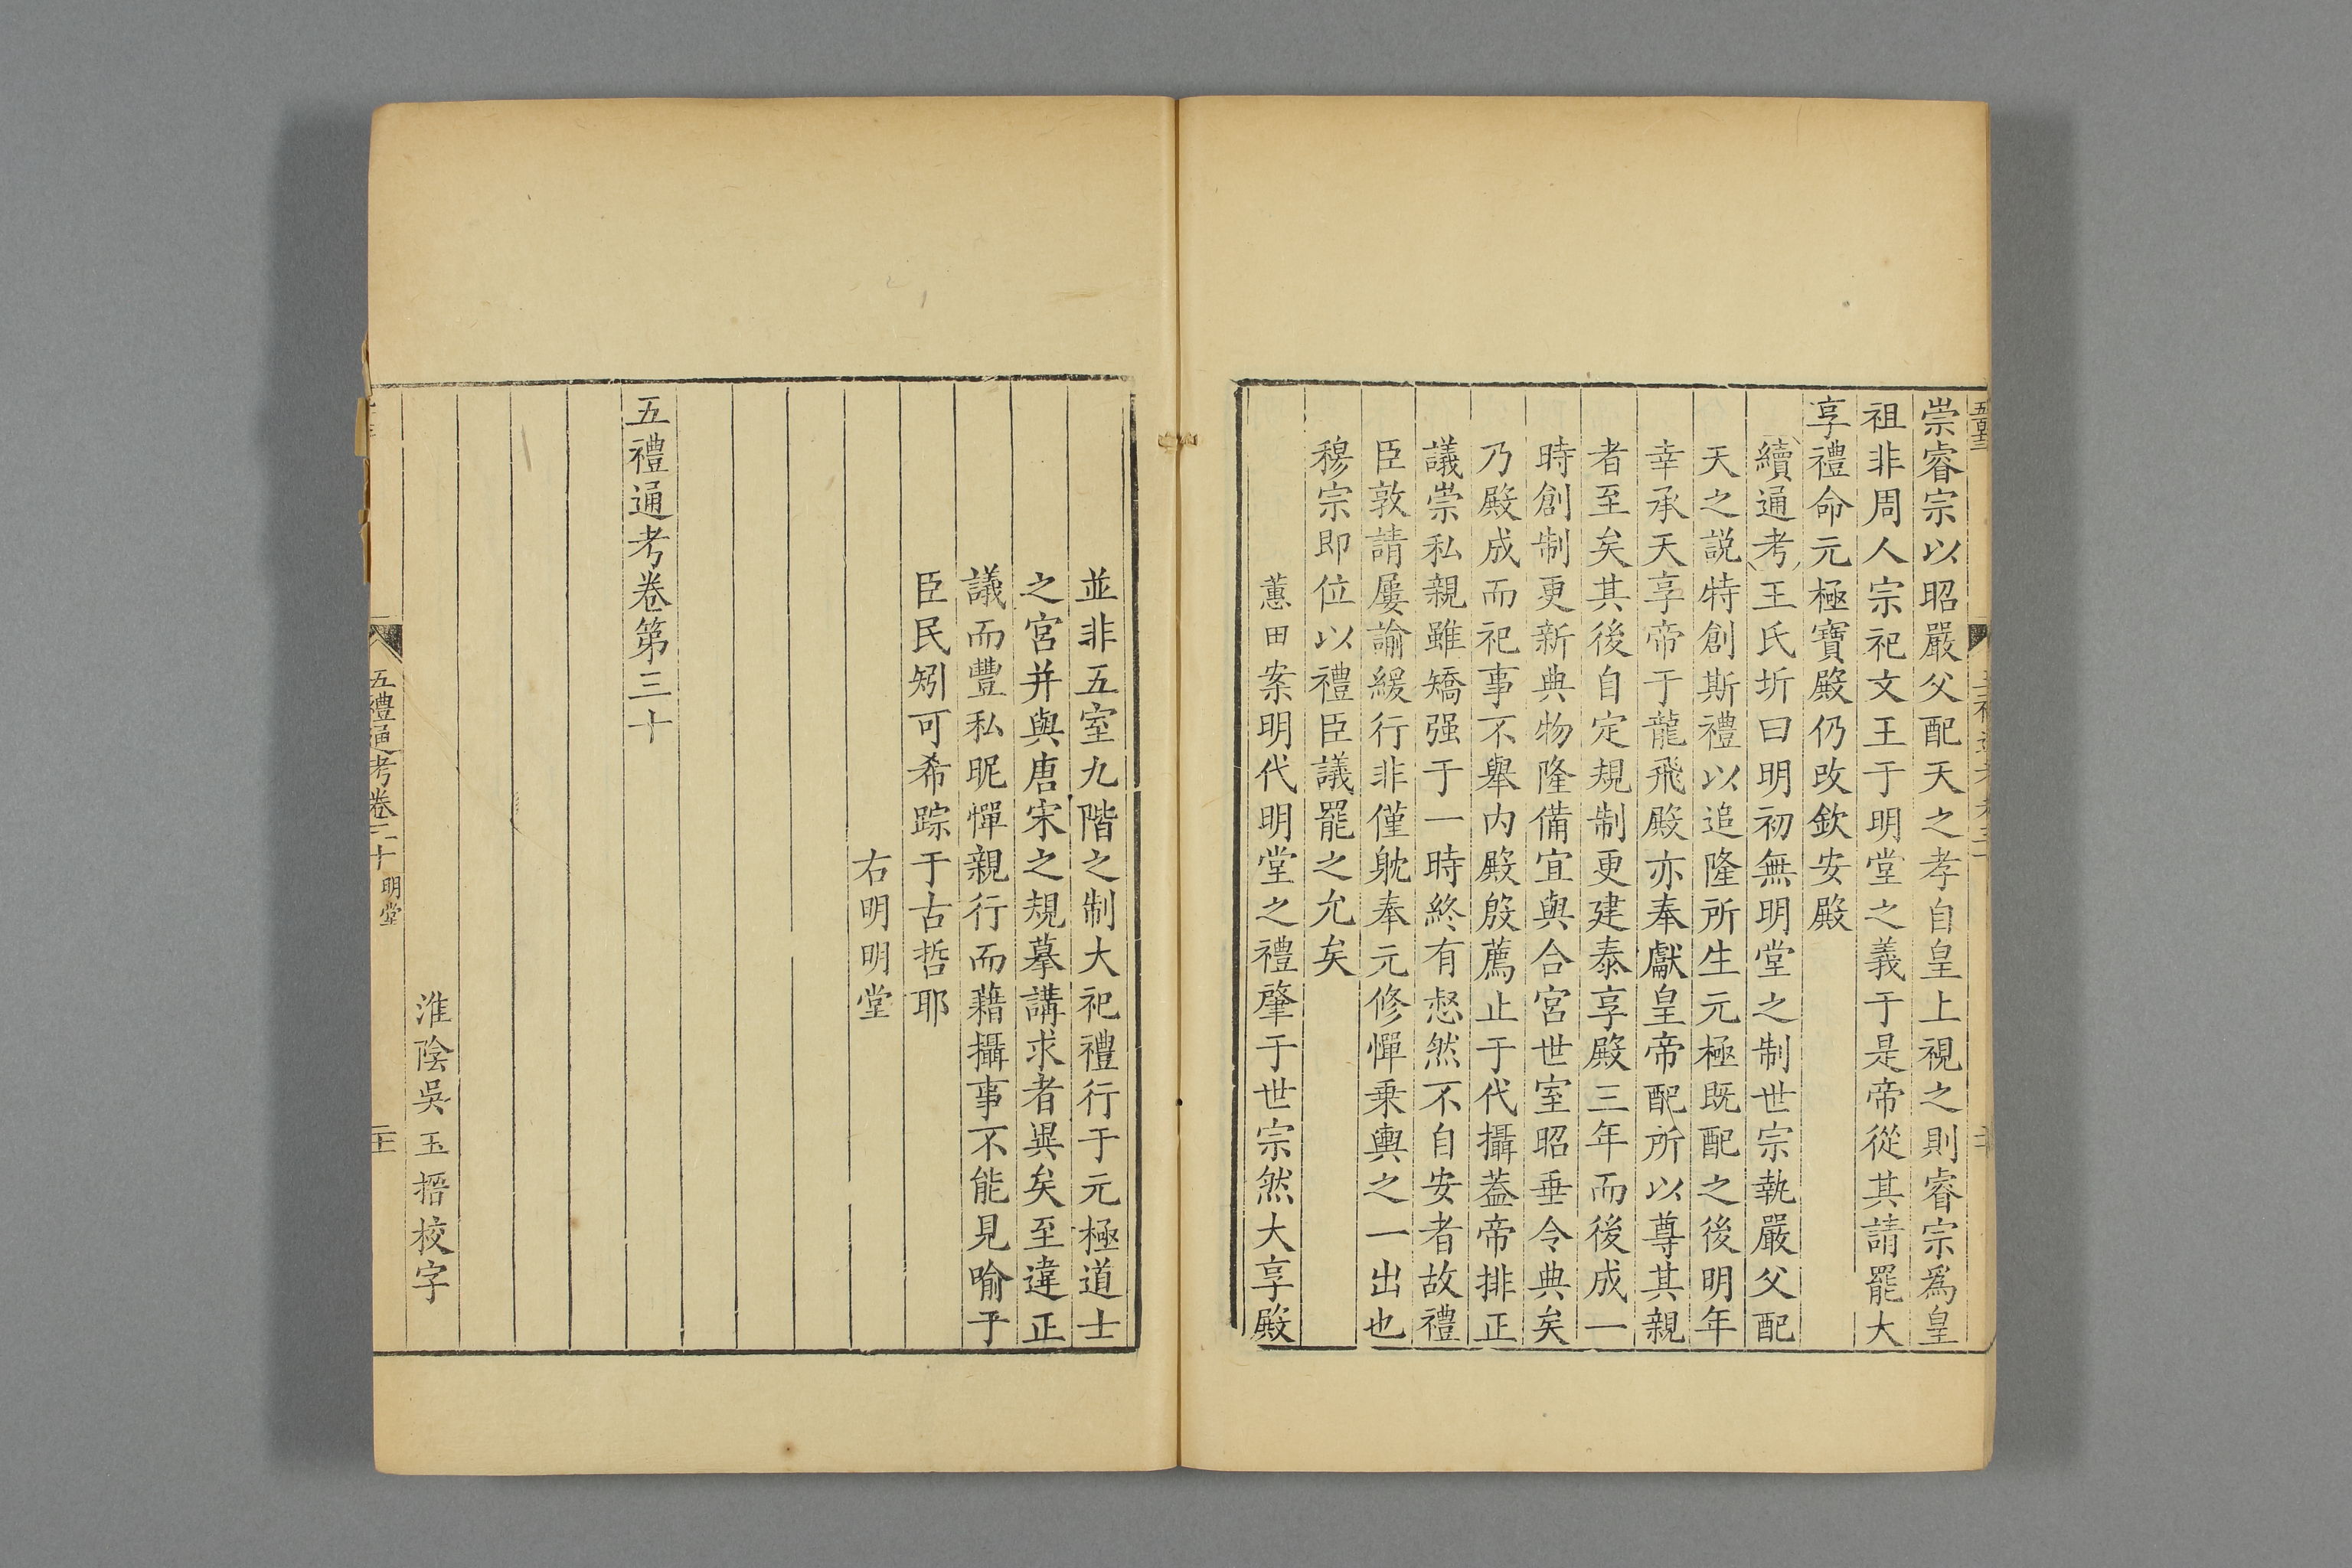 崇睿宗以昭嚴父配天之孝自皇上視之則睿宗爲皇
祖非周人宗祀文王于明堂之義于是帝從其請罷大
享禮命元極寶殿仍改欽安殿
續通考王氏圻曰明初無明堂之制世宗執嚴父配
天之説特創斯禮以追隆所生元極既配之後明年
幸承天享帝于龍飛殿亦奉獻皇帝配所以尊其親
者至矣其後自定規制更建泰享殿三年而後成一
時創制更新典物隆備宜與合宮世室昭垂令典矣
乃殿成而祀事不舉内殿殷薦止于代攝蓋帝排正
議崇私親雖矯强于一時終有惄然不自安者故禮
臣敦請屢諭緩行非僅躭奉元修憚乗輿之一出也
穆宗即位以禮臣議罷之允矣
蕙田案明代明堂之禮肇于世宗然大享殿
並非五室九階之制大祀禮行于元極道士
之宮并與唐宋之規摹講求者異矣至違正
議而豐私昵憚親行而藉攝事不能見喻于
臣民矧可希踪于古哲耶
右明明堂
五禮通考卷第三十
淮陰吳玉搢校字
五禮通考卷三十 明堂